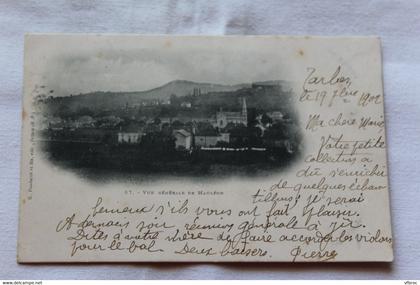 Tarbes
le 19 7bre 1902
Ma chère Marie
Votre petite
collection a
dû s'enrichir
de quelques échan
tillons; je serai
heureux s'ils vous ont fait plaisir.
57. - VUE GÉNÉRALE DE MAULÉON
A demain soir réunion générale à 7h.
Dites à votre mère de faire accorder les violons
pour le bal. Deux baisers. Pierre